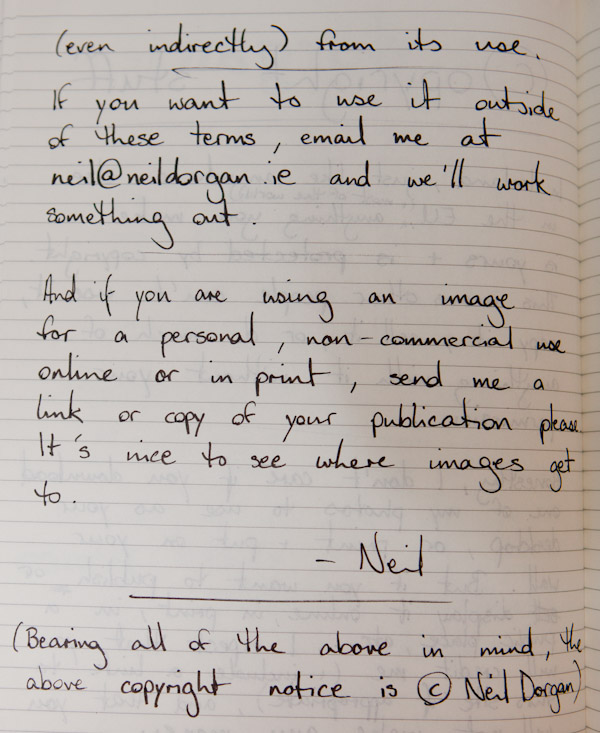 (even indirectly) from its use.
If you want to use it outside
of these terms, email me at
neil@neildorgan.ie and we'll work
something out.
And if you are using an image
for a personal, non-commercial use
online or in print, send me a
link or copy of your publication please.
It's nice to see where images get
to.
- Neil
(Bearing all of the above in mind, the
above copyright notice is © Neil Dorgan)